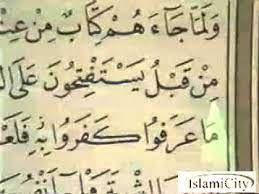 وَلَمَّا جَاءَهُمْ كِتَابٌ مِنْ عِنْ
مِنْ قَبْلُ يَسْتَفْتِحُونَ عَلَى ال
مَا عَرَفُوا كَفَرُوا بِهِ فَلَعْ
IslamiCity